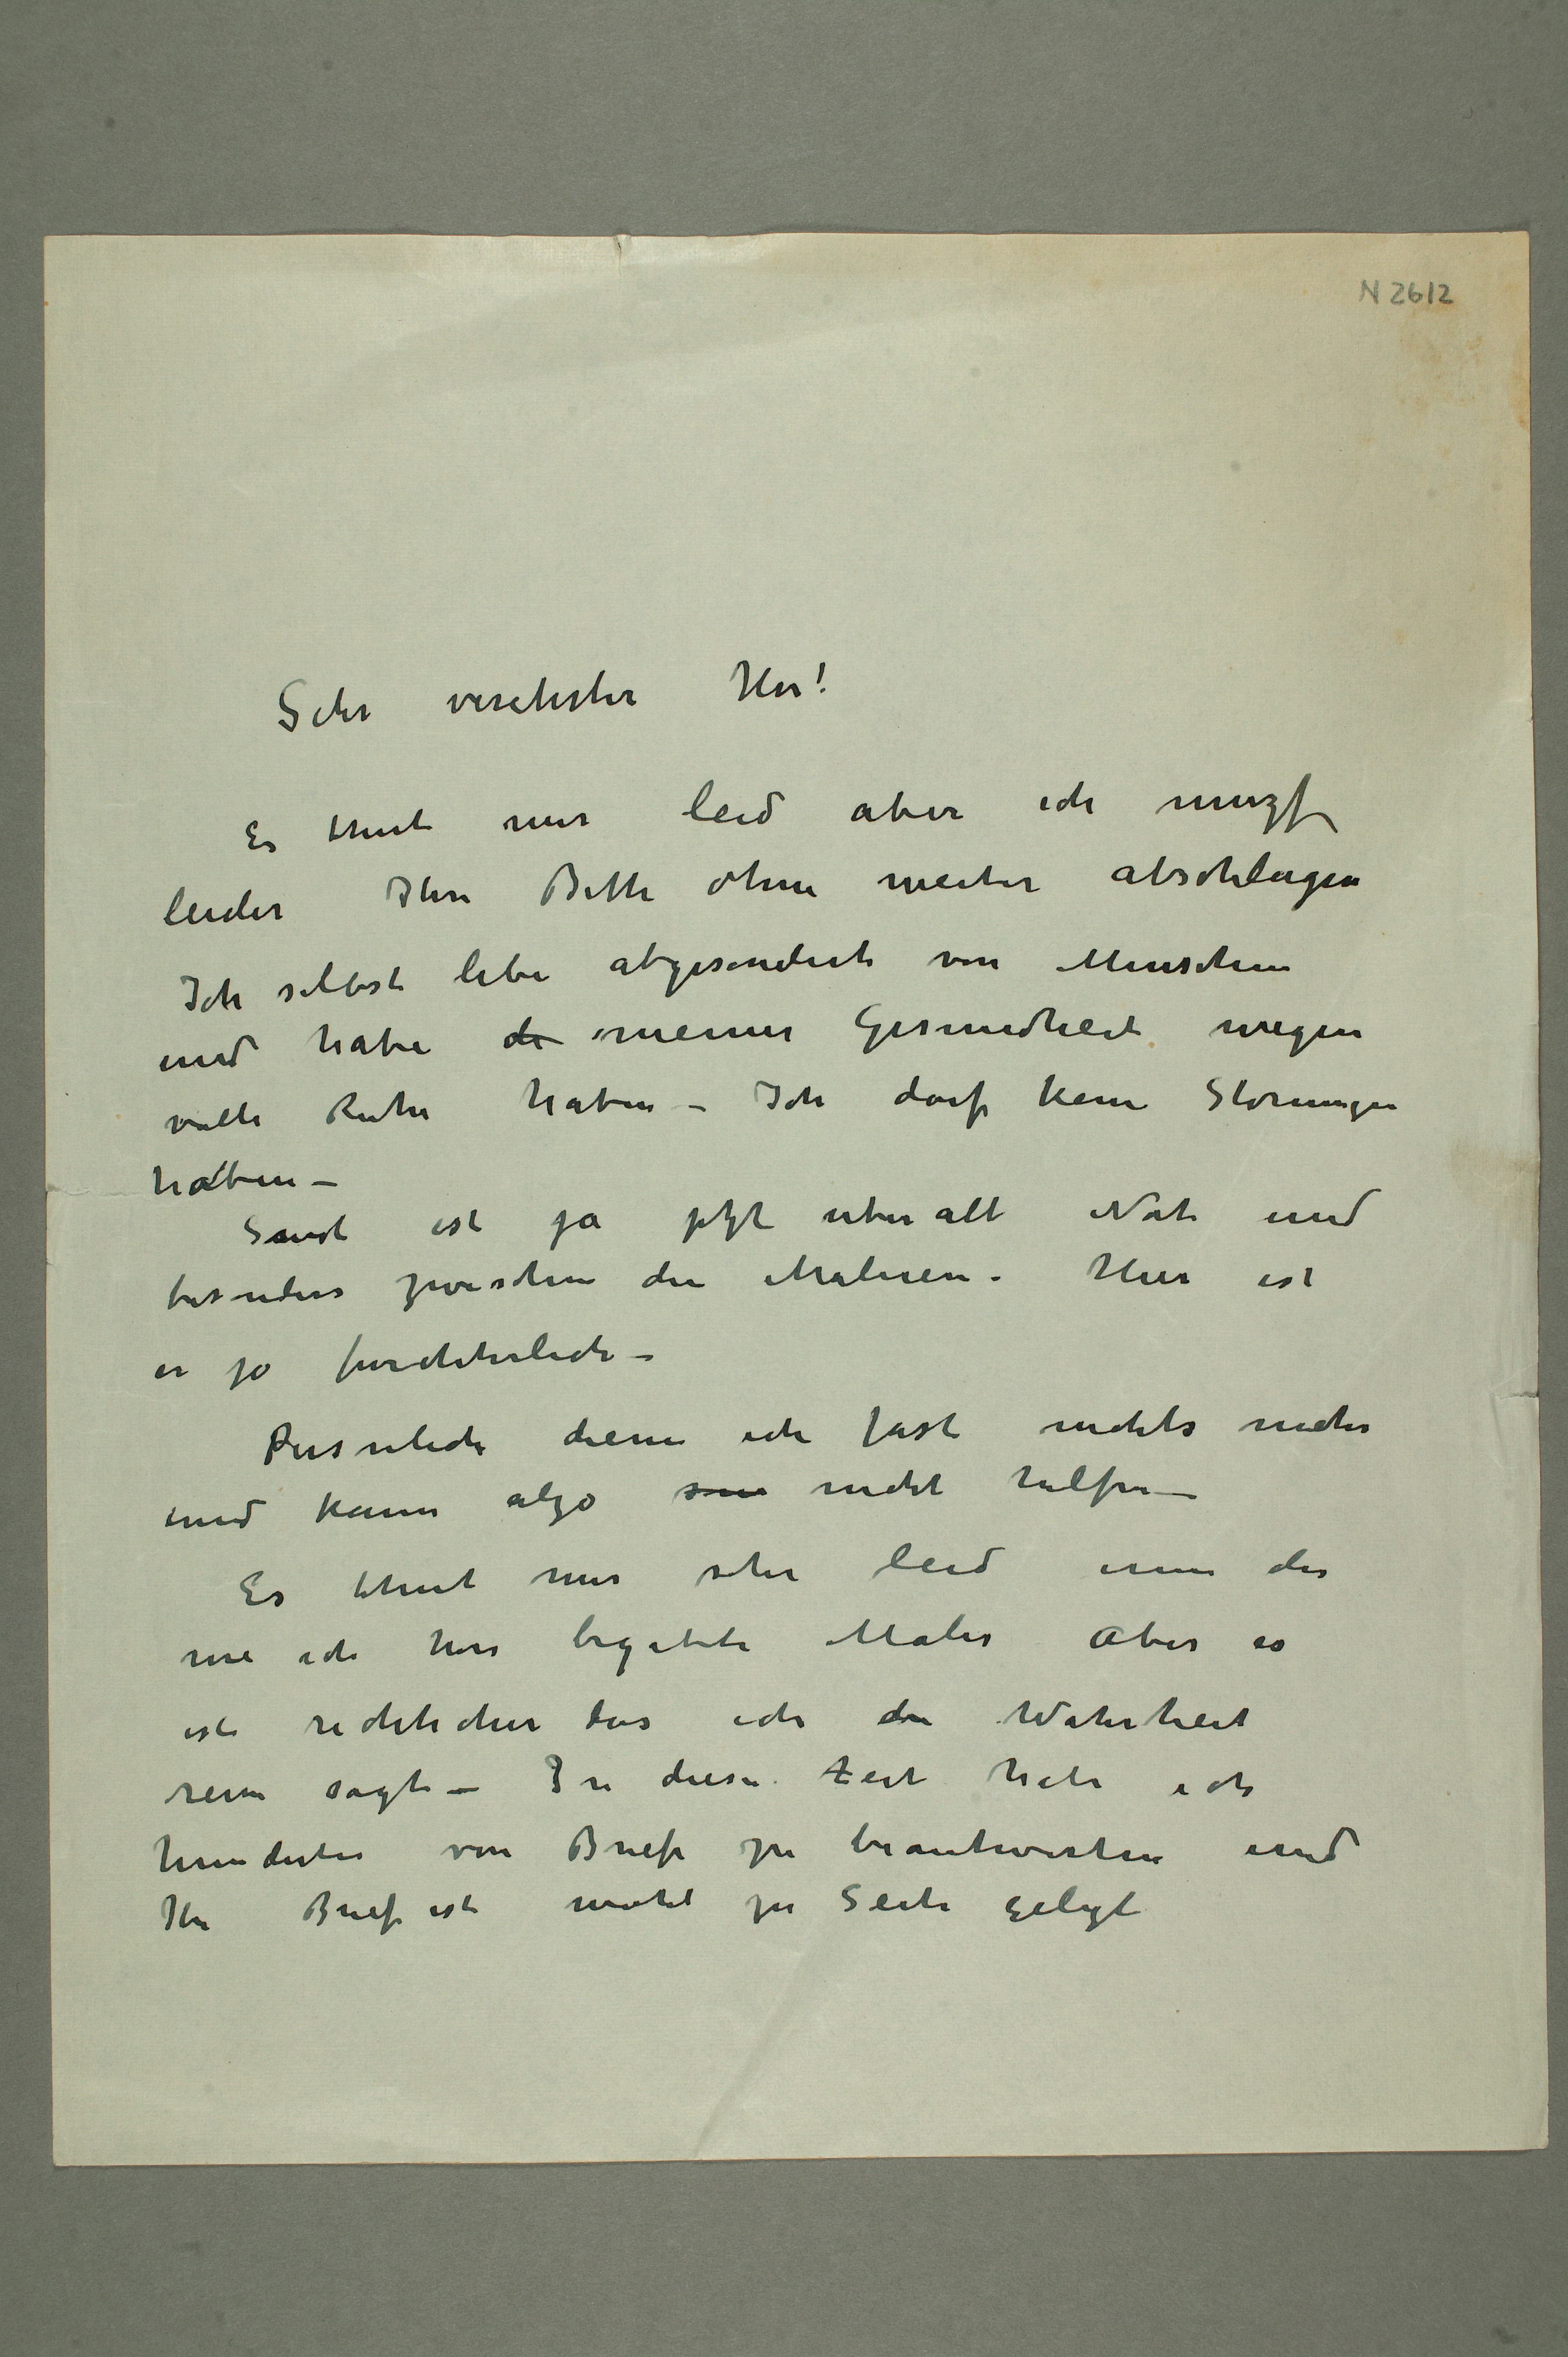 N 2612
Sehr verehrter Herr!
Es thut mir leid aber ich muzf
leider Ihre Bitte ohne weiter abschlagen
Ich selbst lebe abgesondert von Menschen
und habe de meiner Gesundheit wegen
volle Ruhe haben – Ich darf keine Störungen
haben –
Sonst ist ja jetzt uber all Noth und
besonders zwischen den Maleren. Hier ist
es ja furchterlich –
Personlich diene ich fast nichts mehr
und kann alzo nicht hulfen –
Es thut mir sehr leid einen der
wie ich höre begabte Maler Aber es
ist richticher das ich die Wahrheit
rein sagt – In diese Zeit habe ich
hunderten von Briefe zu beantworten und
Ihr Brief ist wohl zu Seite gelegt